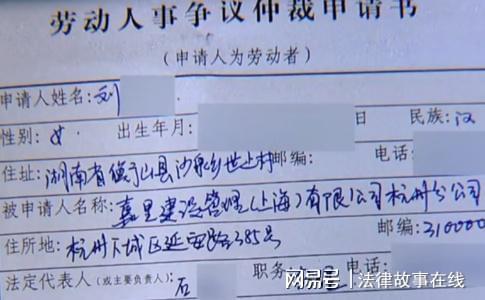 劳动人事争议仲裁申请书
(申请人为劳动者)
申请人姓名:刘
性别:女 出生年月: 日 民族:汉
住址:湖南省衡山县沙泉乡世上村 邮编: 电话:
被申请人名称:嘉里建设管理(上海)有限公司杭州分公司
住所地:杭州下城区延安路385号 邮编:310000
法定代表人(或主要负责人):石 职务: 电话:
网易号 | 法律故事在线